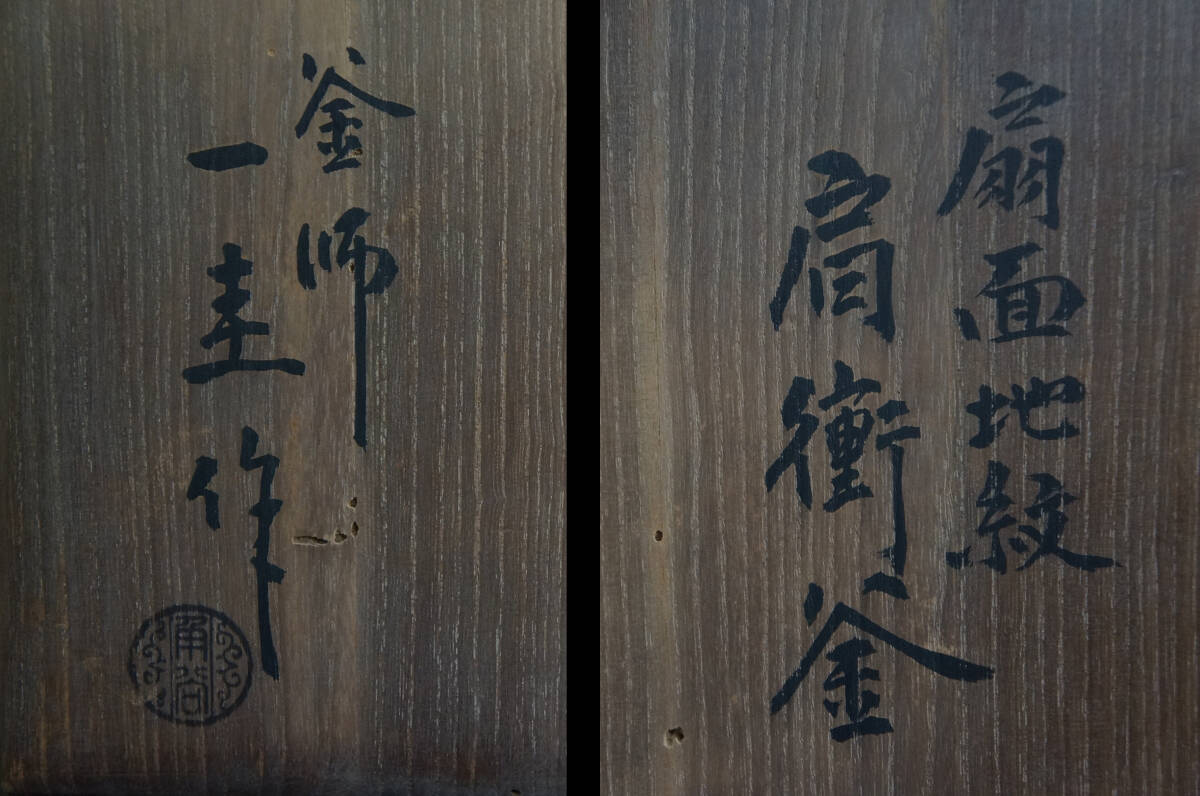 扇面地紋
肩衝釜
釜師
一圭作
角谷